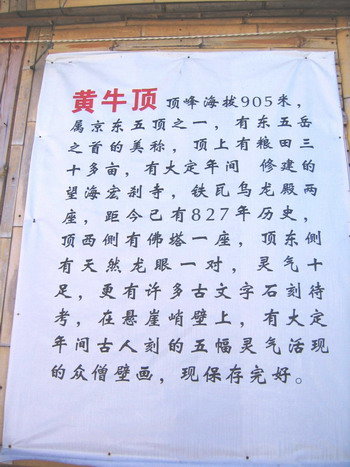 黄牛顶 顶峰海拔905米，
属京东五顶之一，有东五岳
之首的美称，顶上有粮田三
十多亩，有大定年间 修建的
望海宏刹寺，铁瓦乌龙殿两
座，距今已有827年历史，
顶西侧有佛塔一座，顶东侧
有天然龙眼一对，灵气十
足，更有许多古文字石刻待
考，在悬崖峭壁上，有大定
年间古人刻的五幅灵气活现
的众僧壁画，现保存完好。